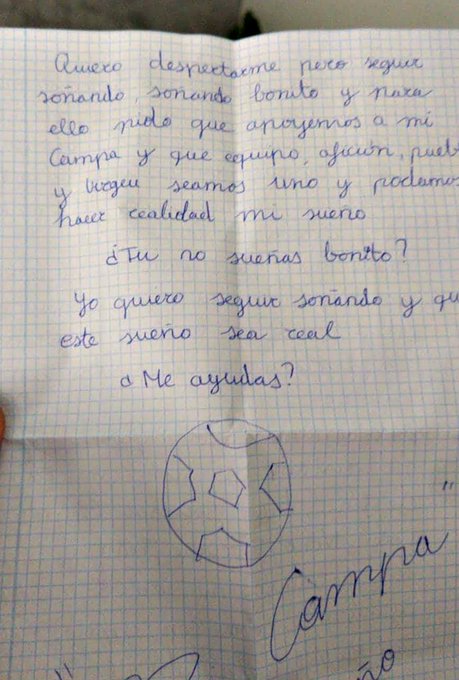 Quiero despertarme pero seguir
soñando, soñando bonito y para
ello pido que apoyemos a mi
Campa y que equipo, afición, puebl
y virgen seamos uno y podamos
hacer realidad mi sueño
¿Tu no sueñas bonito?
Yo quiero seguir soñando y qu
este sueño sea real
¿Me ayudas?
"
Campa
ño
"